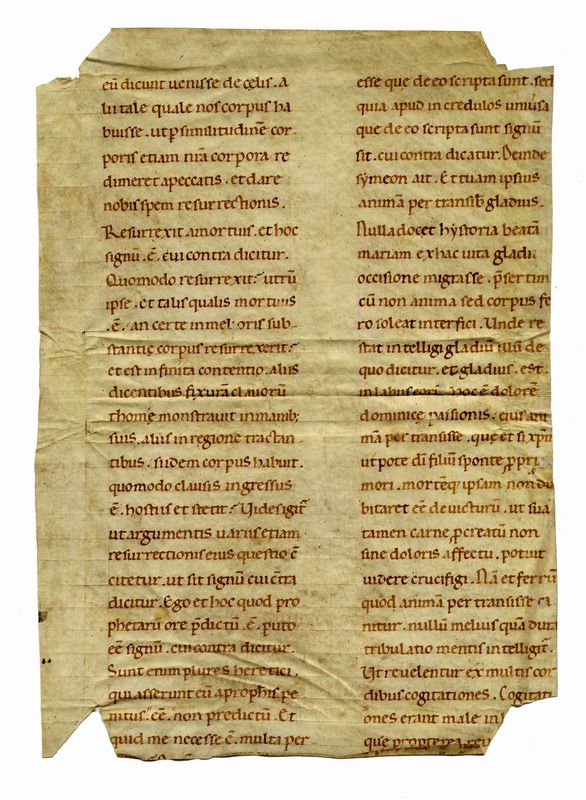 eū dicunt uenisse de cęlis. A
lii tale quale nos corpus ha
buisse. ut ꝑ similitudinē cor
poris etiam nr̄a corpora re
dimeret a peccatis. et dare
nobis spem resurrectionis.
Resurrexit a mortuis. et hoc
signū. ē. cui contra dicitur.
Quomodo resurrexit? utrū
ipse. et talis qualis mortuus
.ē. an certe in melioris sub
stantię corpus resurrexerit?
et est infinita contentio. aliis
dicentibus fixurā clauorū
thomę monstrauit in manib;
suis. aliis in regione tractan
tibus. si idem corpus habuit.
quomodo clausis ingressus
ē. hostiis et stetit? Uides igit̄
ut argumentis uariis etiam
resurrectionis eius questio ē
citetur. ut sit signū cui cōtra
dicitur. Ego et hoc quod pro
phetarū ore p̄dictū .ē. puto
eē signū. cui contra dicitur.
Sunt enim plures heretici.
qui asserunt eū a prophis pe
nitus. cē. non predictū. Et
quid me necesse ē. multa per
esse que de eo scripta sunt. sed
quia apud incredulos uniu͛sa
que de eo scripta sunt signū
sit. cui contra dicatur. Deinde
symeon ait. Et tuam ipsius
animā per transib̄ gladius.
Nulla docet hystoria beatā
mariam ex hac uita gladii
occisione migrasse. p̄sertim
cū non anima sed corpus fe
ro soleat interfici. Unde re
stat intelligi gladiū illū de
quo dicitur. et gladius. est.
in labiis eorū. hoc ē dolorē
dominicę passionis. eius ani
mā per transisse. quę et si xp̄m
utpote dī filiū sponte ꝓpri
mori. morteq ipsam non du
bitaret eē deuicturū. ut sua
tamen carne ꝓcreatū non
sine doloris affectu. potuit
uidere crucifigi. Nā et ferrū
quod animā per transisse ca
nitur. nullū melius quā dura
tribulatio mentis intelligit̄.
Ut reuelentur ex multis cor
dibus cogitationes. Cogitati
ones erant male in
quę propterea reu